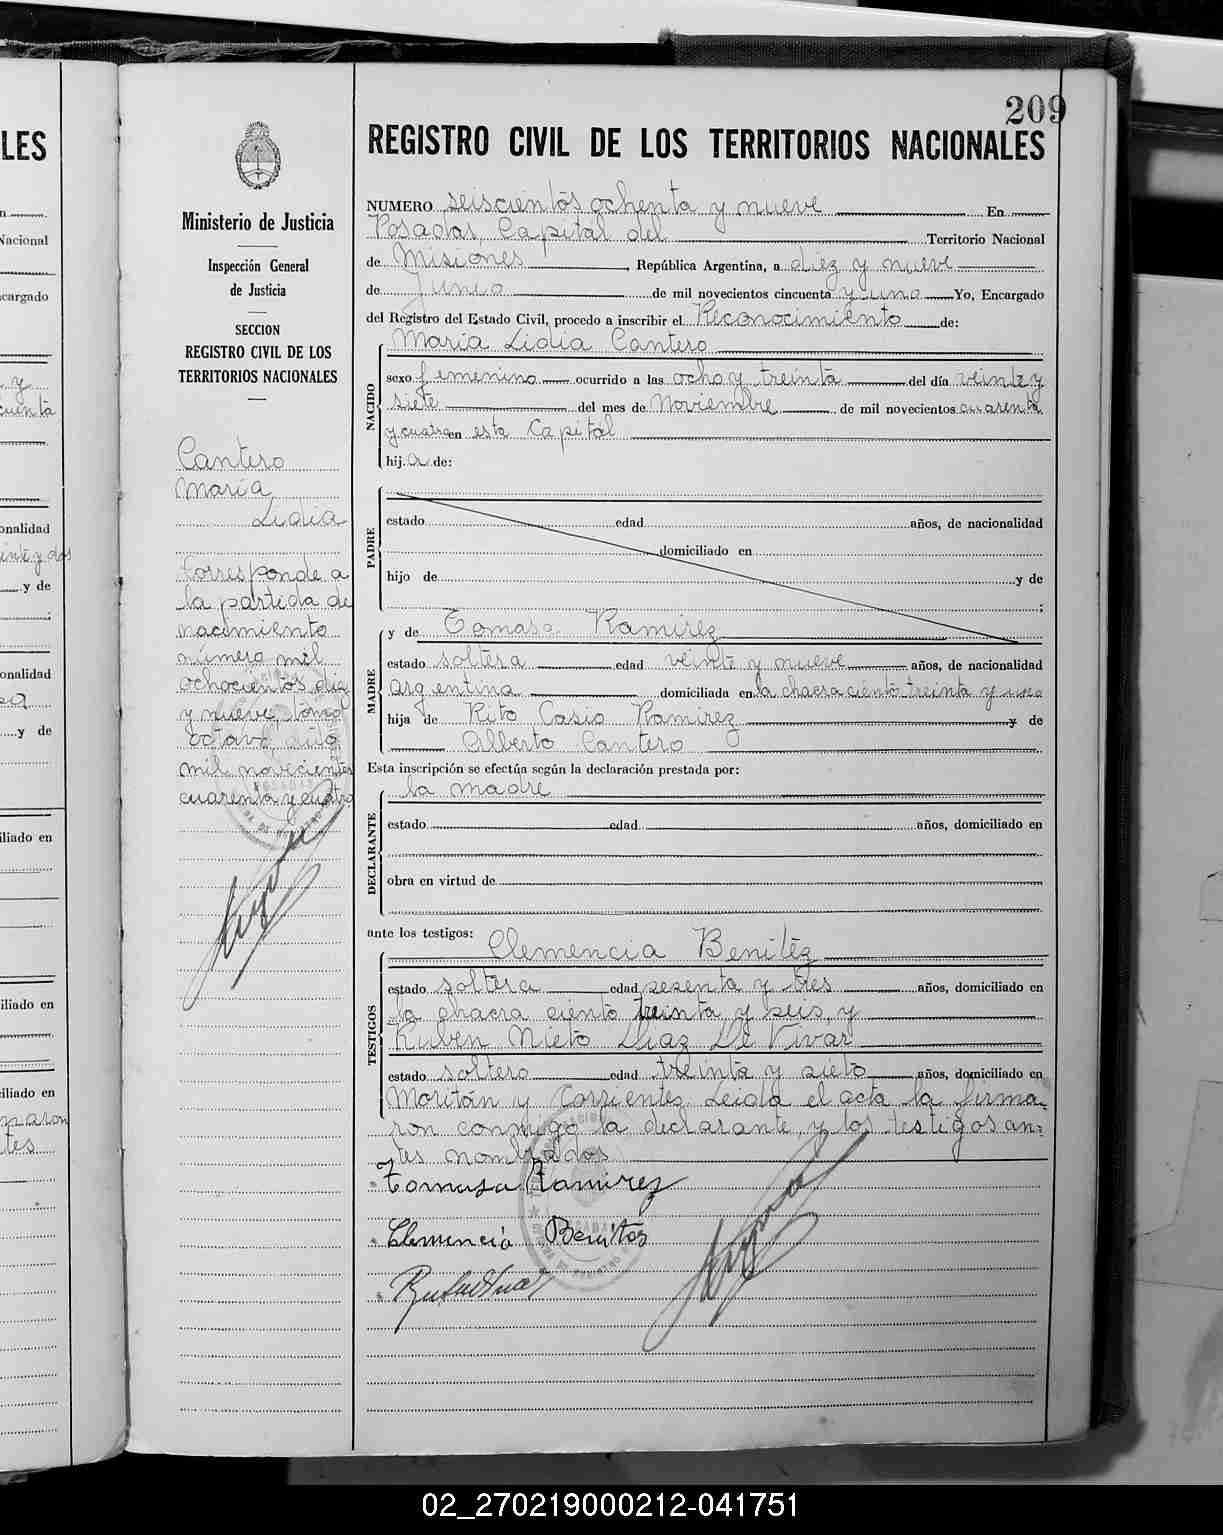 209
REGISTRO CIVIL DE LOS TERRITORIOS NACIONALES
Ministerio de Justicia
Inspección General
de Justicia
SECCION
REGISTRO CIVIL DE LOS
TERRITORIOS NACIONALES
Cantero
María
Lidia
Corresponde a
la partida de
nacimiento
número mil
ochocientos diez
y nueve, tomo
octavo, año
mil novecientos
cuarenta y cuatro
NUMERO seiscientos ochenta y nueve En
Posadas, Capital del Territorio Nacional
de Misiones, República Argentina, a diez y nueve
de Junio de mil novecientos cincuenta y uno Yo, Encargado
del Registro del Estado Civil, procedo a inscribir el Reconocimiento de:
María Lidia Cantero
NACIDO
sexo femenino ocurrido a las ocho y treinta del día veinte y
siete del mes de Noviembre de mil novecientos cuarenta
y cuatro en esta Capital
hija de:
PADRE
estado edad años, de nacionalidad
domiciliado en
hijo de y de
;
MADRE
y de Tomasa Ramirez
estado soltera edad veinte y nueve años, de nacionalidad
argentina domiciliada en la chacra ciento treinta y uno
hija de Rito Casio Ramirez y de
Alberto Cantero
Esta inscripción se efectúa según la declaración prestada por:
la madre
DECLARANTE
estado edad años, domiciliado en
obra en virtud de
ante los testigos:
Clemencia Benitez
TESTIGOS
estado soltera edad sesenta y tres años, domiciliado en
la chacra ciento treinta y seis, y
Ruben Nieto Diaz De Vivar
estado soltero edad treinta y siete años, domiciliado en
Moritán y Corrientes. Leida el acta la firma-
ron conmigo la declarante y los testigos an-
tes nombrados
Tomasa Ramirez
Clemencia Benitez
LES
Nacional
cargado
y
cuenta
onalidad
einte y dos
y de
;
onalidad
y de
iliado en
iliado en
iliado en
maron
tes
02_270219000212-041751